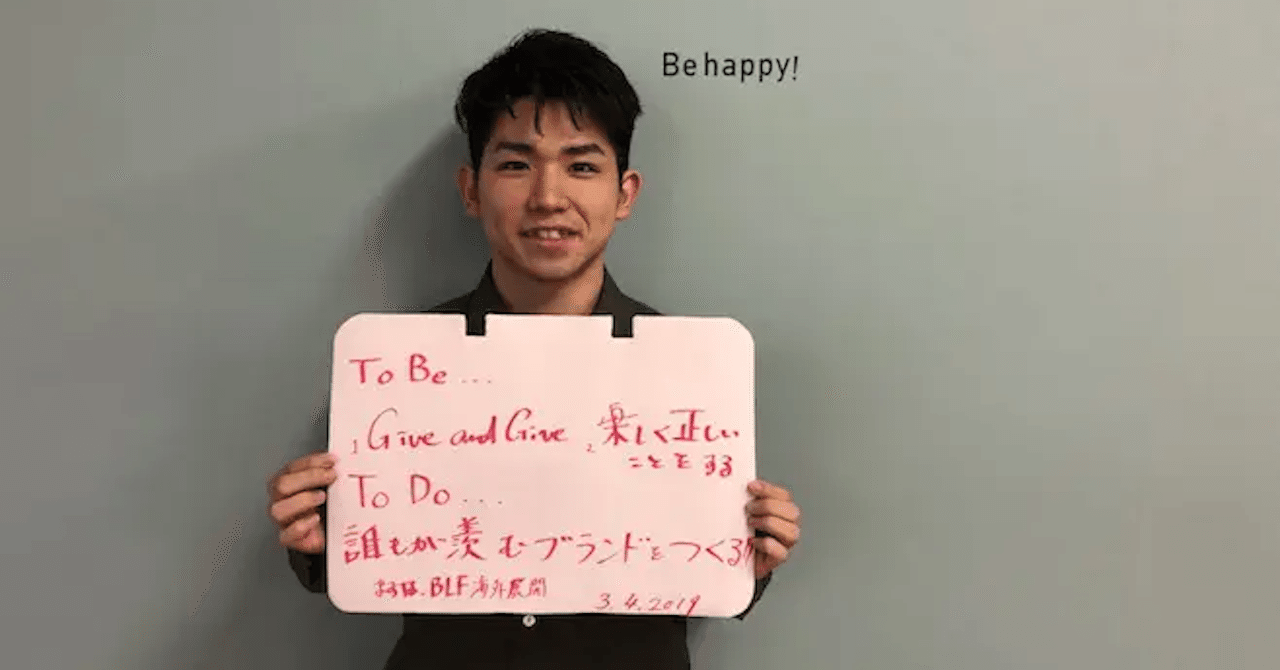 Be happy!
To Be...
1, Give and Give 2, 楽しく正しい
ことをする
To Do...
誰もが羨むブランドをつくる
まずは、BLF海外展開
3.4.2019